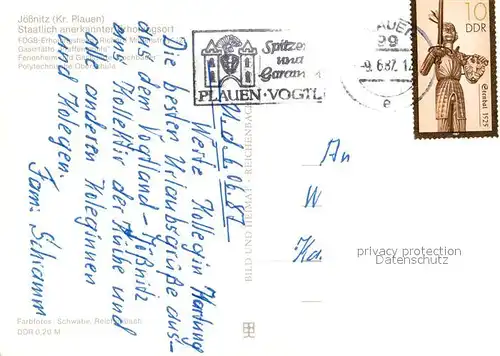 Jößnitz (Kr. Plauen)
Staatlich anerkannter Erholungsort
FDGB-Erholungsheim
Gaststätte
Ferienheim
Polytechnische Oberschule
Farbfotos: Schwabe, Reichenbach
DDR 0,20 M
BILD UND HEIMAT · REICHENBACH
Spitzen
und
Garan
PLAUEN · VOGTL
PLAUEN
99
-9.6.87.12
e
10
DDR
Ziernbal 1525
d. 6.06.87
Werte Kollegin Hartung
Die besten Urlaubsgrüße aus
dem Vogtland - Jößnitz
ans Kollektiv der Küche und
alle anderen Koleginnen
und Kolegen.
Fam. Schramm
An
W
Ka.
privacy protection
www.ansichtskarten-center.de